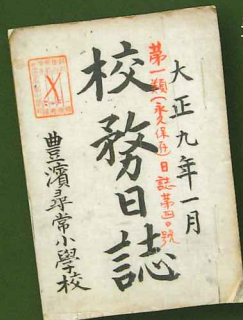 大正九年一月
第一類(永久保存)日誌第四〇號
校務日誌
豊濱尋常小學校